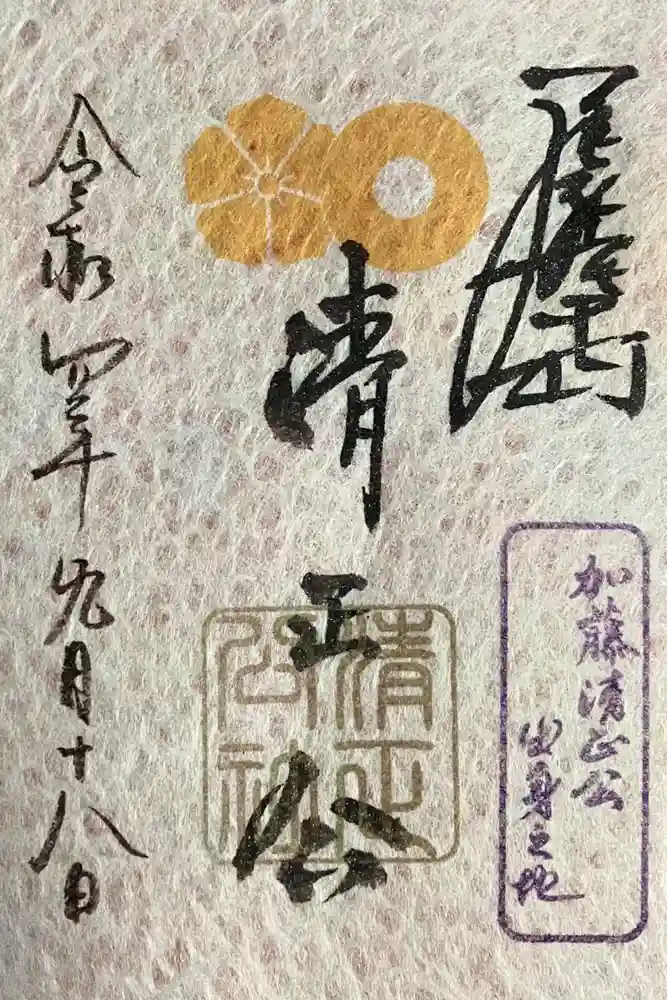 清正公
加藤清正公
出身之地
清正
公
令和四年九月十八日